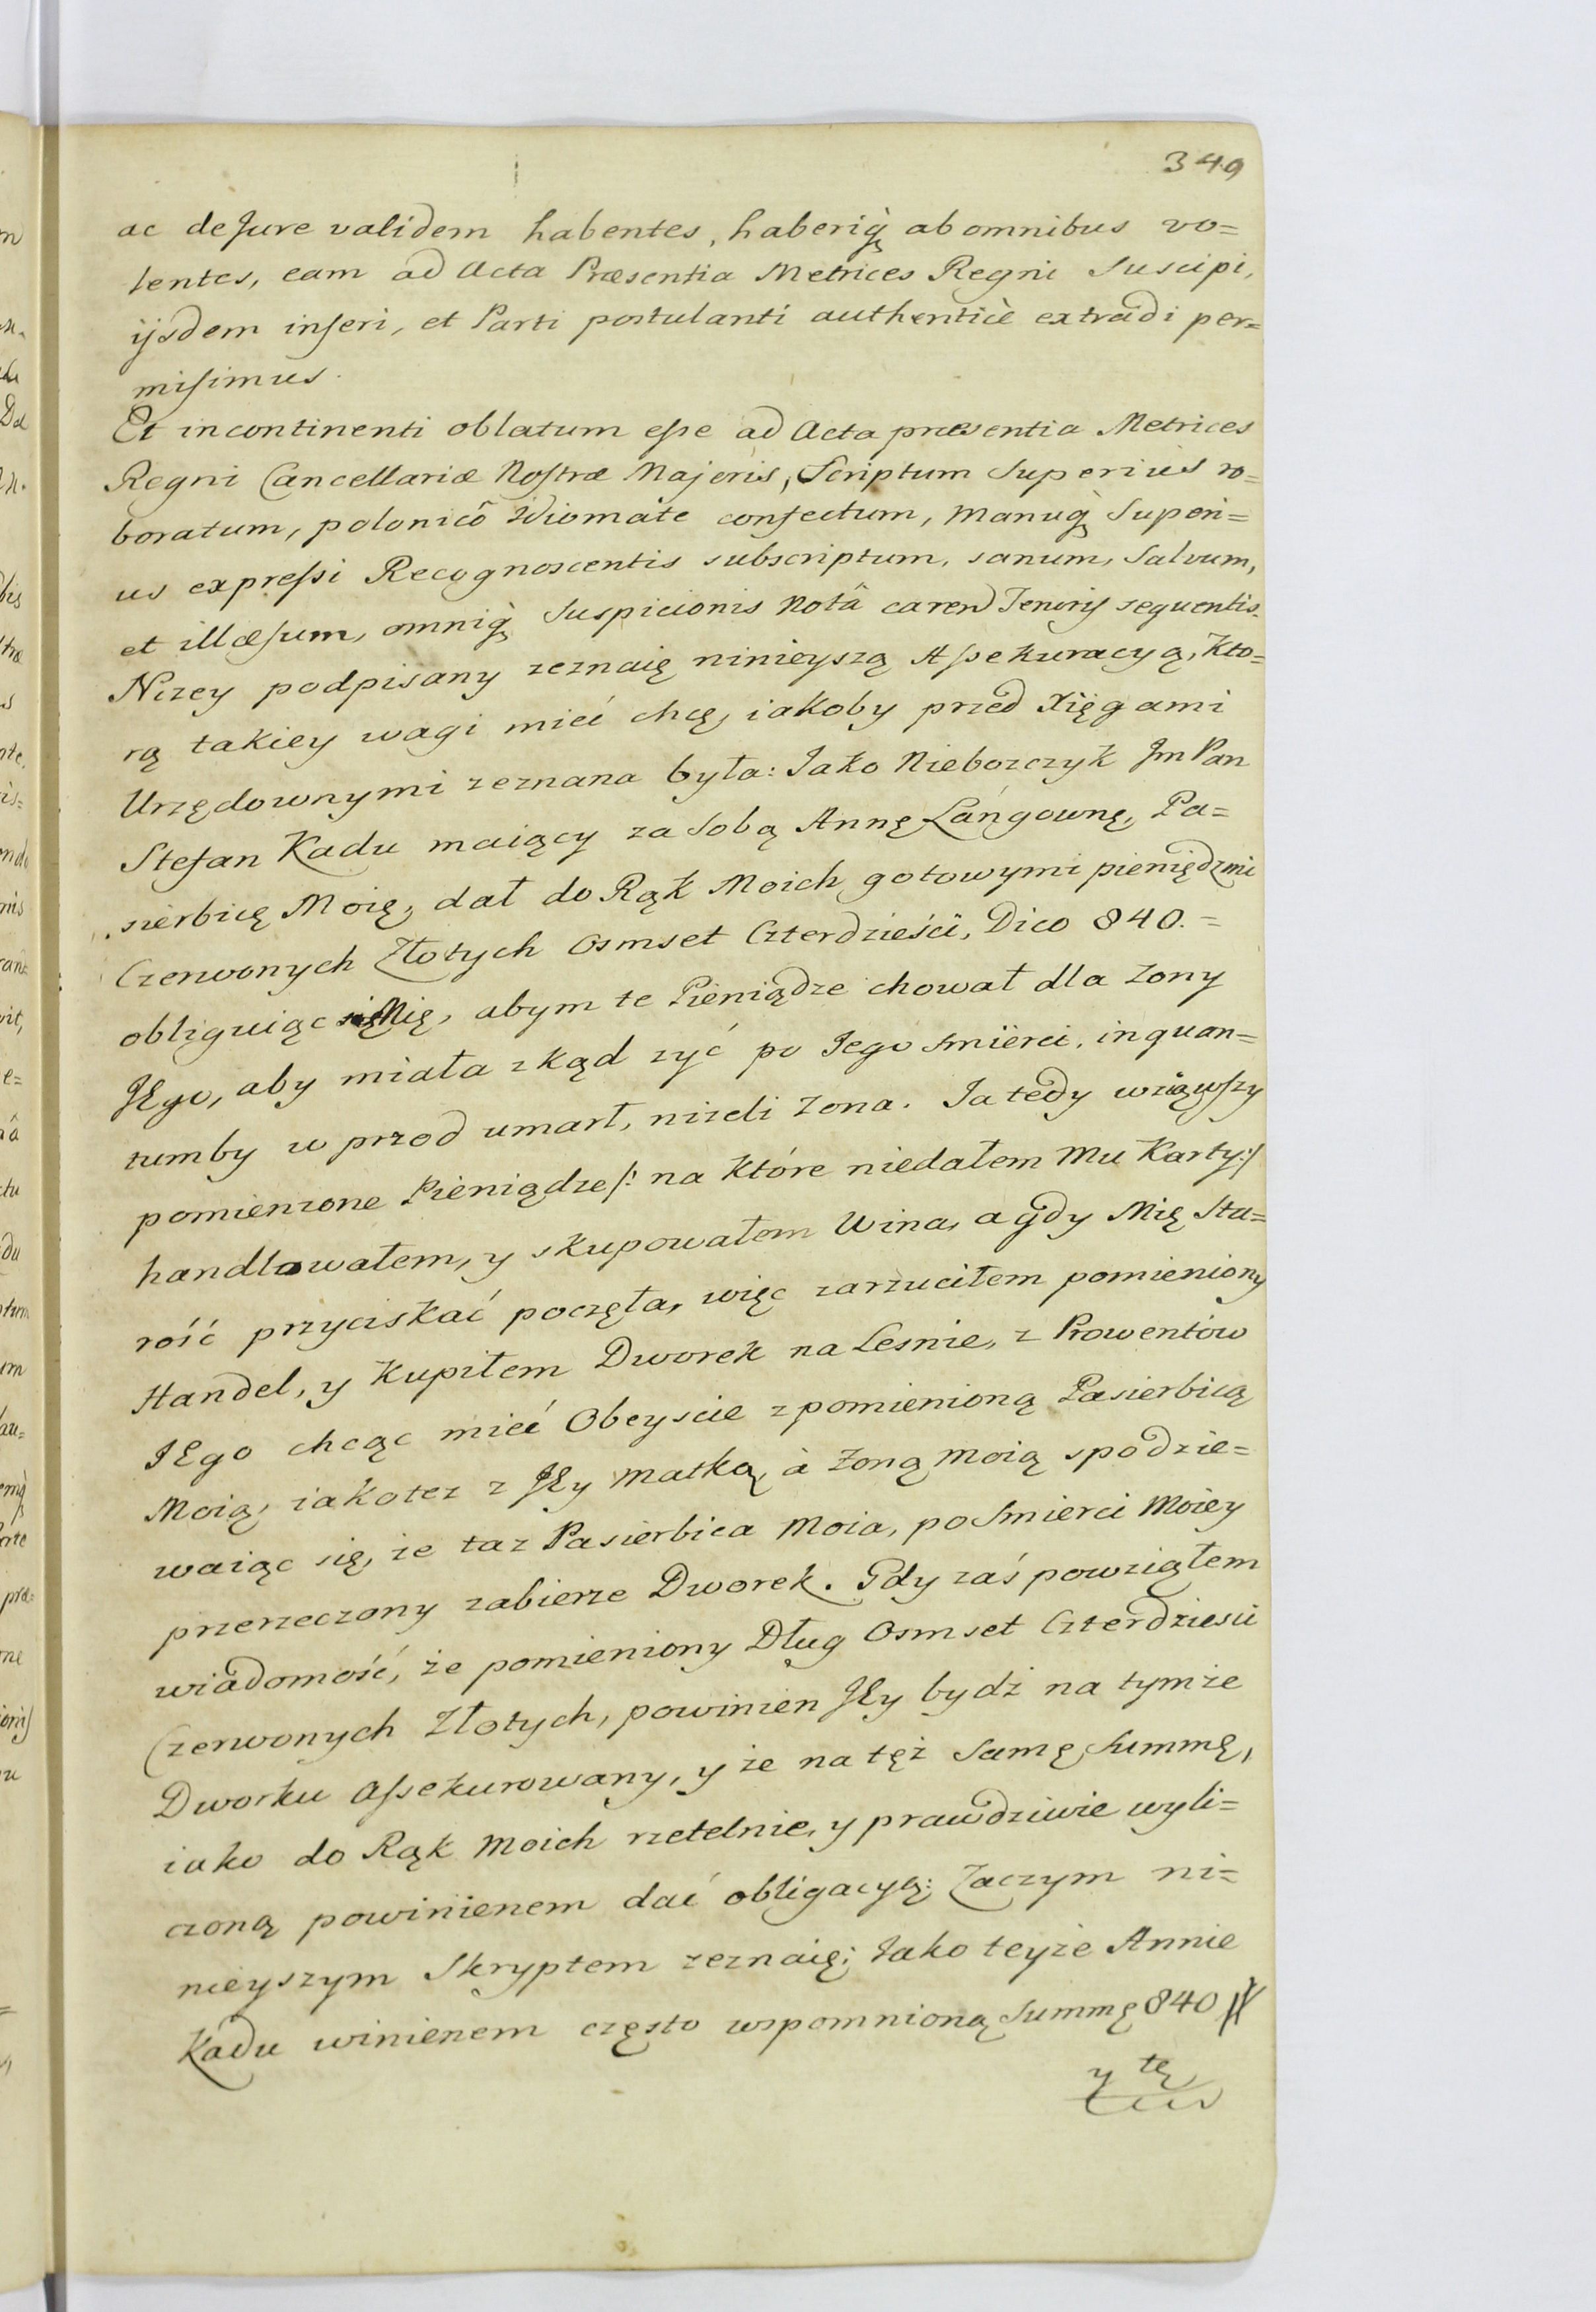 349
ac de Jure validem habentes, haberiq̀ ab omnibus vo=
lentes, eam ad Acta Præsentia Metrices Regni Suscipi,
ijsdem inseri, et Parti postulanti authenticè extradi per=
misimus.
Et incontinenti oblatum esse ad Acta præsentia Metrices
Regni Cancellariæ Nostræ Majoris, Scriptum Superius ro=
boratum, polonicô Idiomate confectum, Manuq̀ Superi=
us expressi Recognoscentis subscriptum, sanum, Salvum,
et illæsum, omniq̀ Suspicionis Notâ caren Tenoris sequentis.
Nizey podpisany zeznaię ninieyszą Assekuracyą, Kto=
rą takiey wagi mieć chcę, iakoby przed Xięgami
Urzędownymi zeznana była: Jako Nieboszczyk Jm Pan
Stefan Kadu maiący za Sobą Annę Langownę, Pa=
sierbicę Moię, dał do Rąk Moich gotowymi pieniędzmi
Czerwonych Złotych Osmset Czterdzieści, Dico 840.=
obliguiąc Mię, abym te Pieniądze chował dla Zony
JEgo, aby miała zkąd zyć po Jego Smierci, in quan=
tumby w przod umarł, nizeli Zona. Ja tedy wziąwszy
pomienione Pieniądze /: na Które niedałem Mu Karty :/
handlowałem, y skupowałem Wina, a gdy Mię Sta=
rość przyciskać poczęła, więc zarzuciłem pomieniony
Handel, y Kupiłem Dworek na Lesnie, z Prowentow
JEgo chcąc mieć Obeyscie z pomienioną Pasierbicą
Moią, iakotez z JEy Matką, à Zoną Moią spodzie=
waiąc się, ze taz Pasierbica Moia, po Smierci Moiey
przerzeczony zabierze Dworek. Gdy zaś powziąłem
wiadomość, że pomieniony Dług Osmset Czterdziesci
Czerwonych Złotych, powinien JEy bydź na tymże
Dworku Assekurowany, y że na tęż Samę Summę,
iako do Rąk Moich rzetelnie, y prawdziwie wyli=
czoną powinienem dać obligacyą: Zaczym ni=
nieyszym Skryptem zeznaię; Jako teyże Annie
Kadu winienem często wspomnioną Summę 840 #
y tę